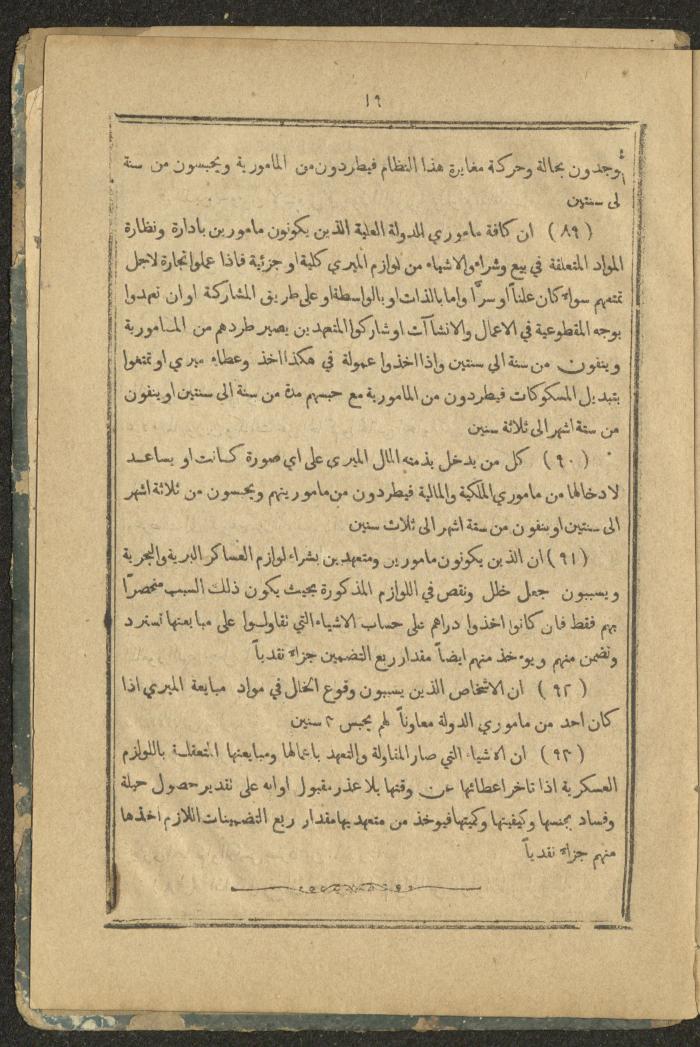 ١٩
يوجدون بحالة وحركة مغايرة هذا النظام فيطردون من المامورية ويحبسون من سنة
الى سنتين
(٨٩) ان كافة ماموري الدولة العلية الذين يكونون مامورين بادارة ونظارة
المواد المتعلقة في بيع وشراء والاشياء من لوازم الميري كلية او جزئية فاذا عملوا تجارة لاجل
تمتعهم سواء كان علناً او سرًّا واما بالذات او بالواسطة او على طريق المشاركة او ان تعهدوا
بوجه المقطوعية في الاعمال والانشاآت او شاركوا المتعهدين يصير طردهم من المامورية
وينفون من سنة الى سنتين واذا اخذوا عمولة في هكذا اخذ وعطاء ميري او تمتعوا
بتبديل المسكوكات فيطردون من المامورية مع حبسهم مدة من سنة الى سنتين او ينفون
من ستة اشهر الى ثلاثة سنين
(٩٠) كل من يدخل بذمته المال الميري على اي صورة كانت او يساعد
لادخالها من ماموري الملكية والمالية فيطردون من مامورينهم ويحبسون من ثلاثة اشهر
الى سنتين او ينفون من ستة اشهر الى ثلاث سنين
(٩١) ان الذين يكونون مامورين ومتعهدين بشراء لوازم العساكر البرية والبحرية
ويسببون جعل خلل ونقص في اللوازم المذكورة بحيث يكون ذلك السبب منحصرًا
بهم فقط فان كانوا اخذوا دراهم على حساب الاشياء التي تقاولوا على مبايعتها تسترد
وتضمن منهم ويوءخذ منهم ايضاً مقدار ربع التضمين جزاءً نقدياً
(٩٢) ان الاشخاص الذين يسببون وقوع الخلل في مواد مبايعة الميري اذا
كان احد من ماموري الدولة معاوناً لهم يحبس ٣ سنين
(٩٣) ان الاشياء التي صار المقاولة والتعهد باعمالها ومبايعتها المتعقلة باللوازم
العسكرية اذا تاخر اعطائها عن وقتها بلا عذر مقبول او انه على تقدير حصول حيلة
وفساد بجنسها وكيفيتها وكميتها فيوخذ من متعهديها مقدار ربع التضمينات اللازم اخذها
منهم جزاءً نقدياً